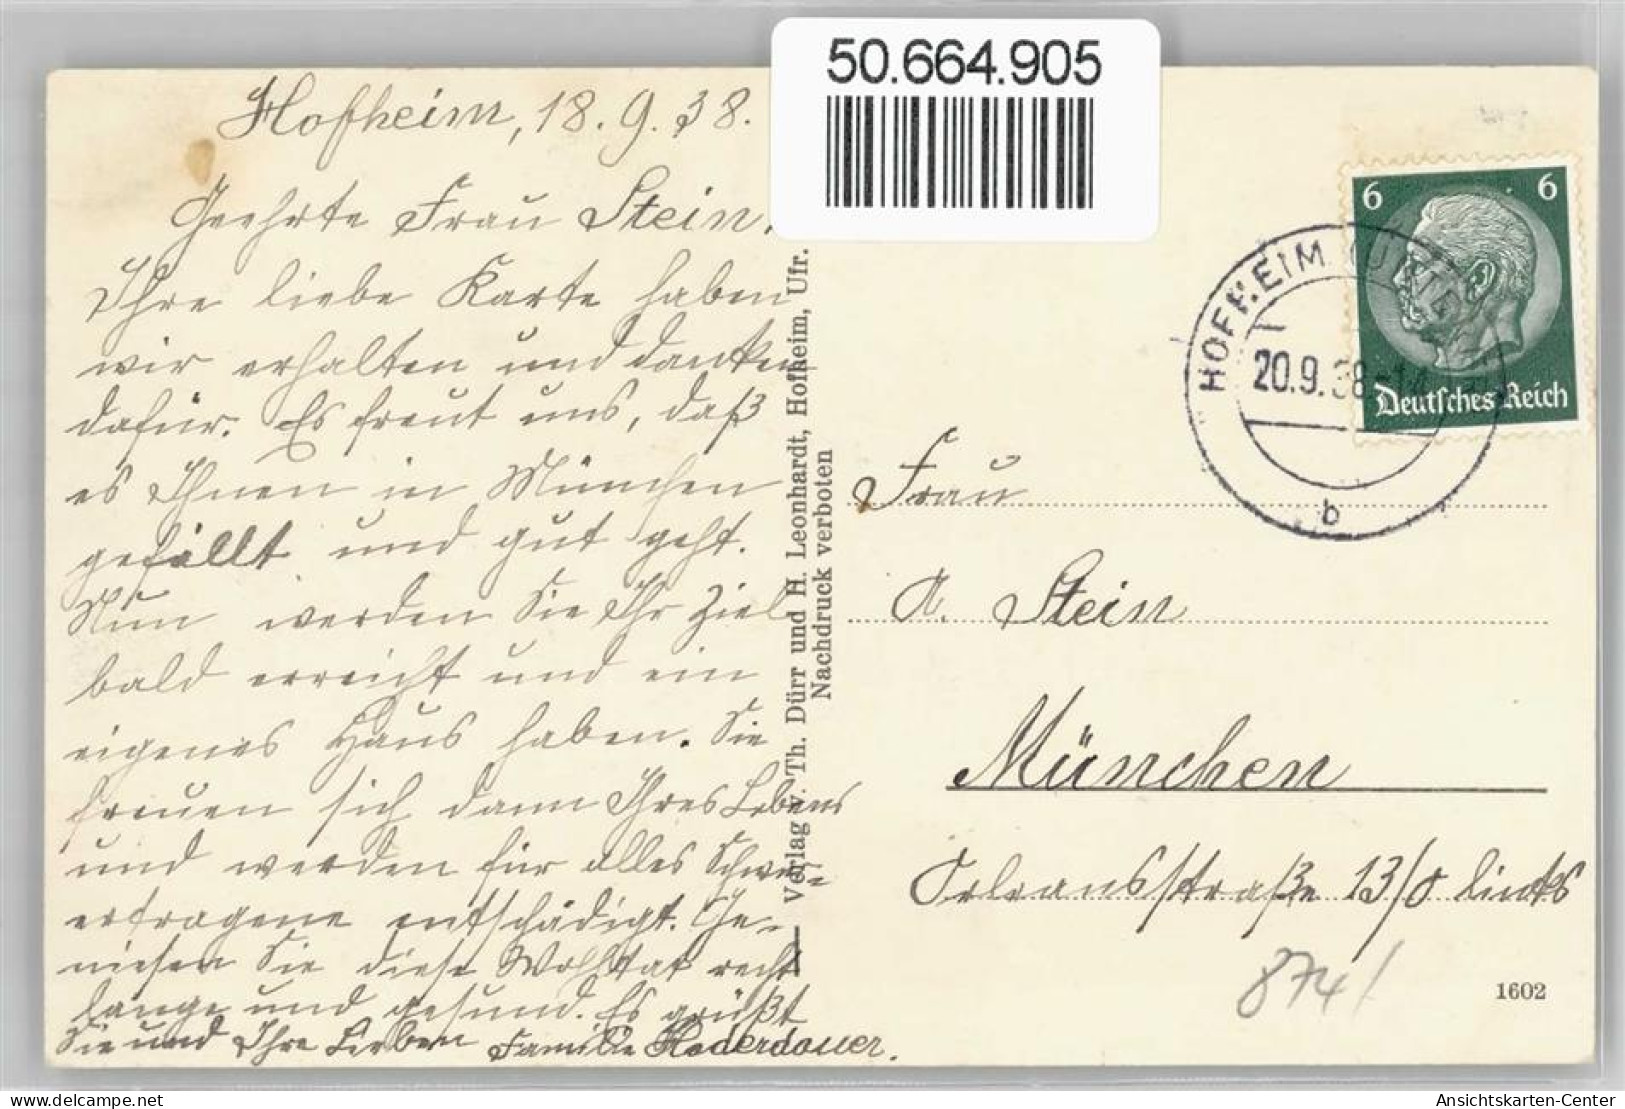 50.664.905
Hofheim, 18.9.38.
Geehrte Frau Stein.
Ihre liebe Karte haben
wir erhalten und danken
dafür. Es freut uns, daß
es Ihnen in München
gefällt und gut geht.
Nun werden Sie Ihr Ziel
bald erreicht und ein
eigenes Haus haben. Sie
freuen sich dann Ihres Lebens
und werden für alles Schwer-
ertragene entschädigt. Ge-
niesen Sie diese Wohltat recht
lange und gesund. Es grüßt
Sie und Ihre Lieben Familie
Verlag v. Th. Dürr und H. Leonhardt, Hofheim, Ufr.
Nachdruck verboten
6 6
Deutsches Reich
HOFHEIM (UNTE
20.9.38-
b
Frau
A. Stein
München
Orleansstraße 13/0 links
874/
1602
www.delcampe.net
Ansichtskarten-Center